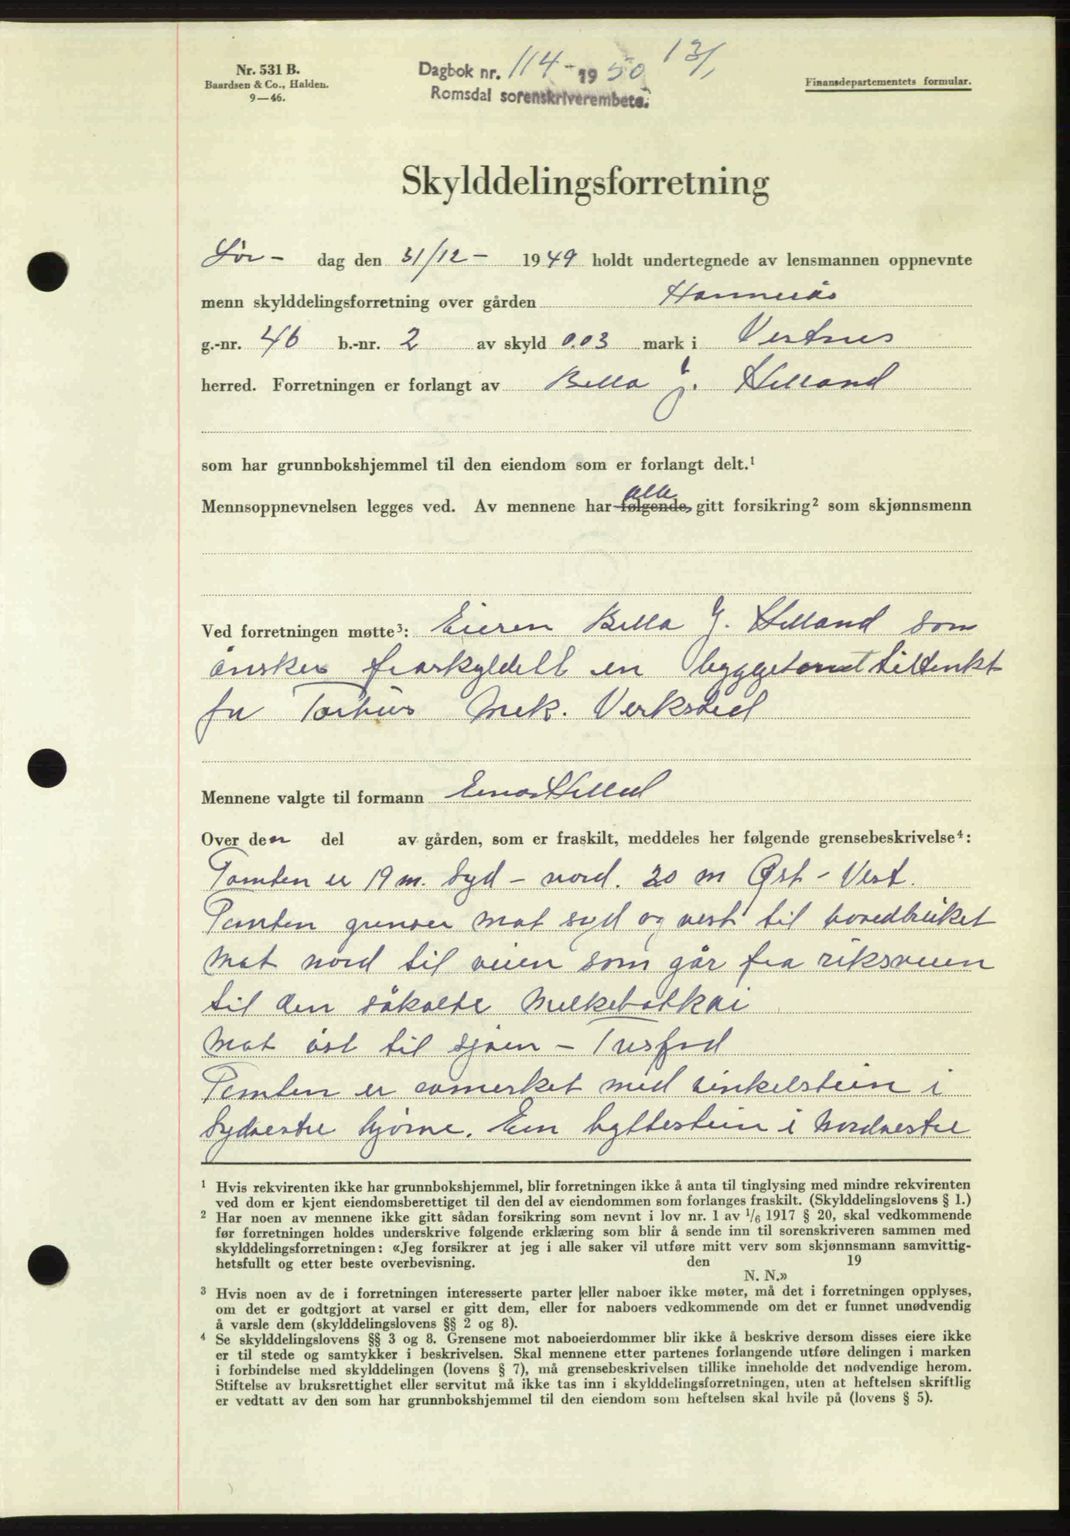 Nr. 531 B.
Baardsen & Co., Halden.
9—46.
Dagbok nr. 114 - 1950 13/1
Romsdal sorenskriverembete.
Finansdepartementets formular.
Skylddelingsforretning
Lør- dag den 31/12 - 1949 holdt undertegnede av lensmannen oppnevnte
menn skylddelingsforretning over gården
g.-nr. 46 b.-nr. 2 av skyld 0.03 mark i Vestnes
herred. Forretningen er forlangt av Bella J. Helland
som har grunnbokshjemmel til den eiendom som er forlangt delt.¹
alle
Mennsoppnevnelsen legges ved. Av mennene har følgende, gitt forsikring² som skjønnsmenn
Ved forretningen møtte³: Eieren Bella J. Helland som
ønsker fraskyldelt en byggetomt tiltenkt
for Mek. Verksted
Mennene valgte til formann Einar
Over den del av gården, som er fraskilt, meddeles her følgende grensebeskrivelse⁴:
Tomten er 19 m. syd - nord. 20 m Øst - Vest.
Tomten grenser mot syd og vest til hovedbruket
mot nord til veien som går fra riksveien
til den såkalte Melkebåtkai
Mot øst til sjøen - Tresfjord
Tomten er avmerket med vinkelstein i
Sydvestre hjørne. Em hyttestein i Nordvestre
¹ Hvis rekvirenten ikke har grunnbokshjemmel, blir forretningen ikke å anta til tinglysing med mindre rekvirenten
ved dom er kjent eiendomsberettiget til den del av eiendommen som forlanges fraskilt. (Skylddelingslovens § 1.)
² Har noen av mennene ikke gitt sådan forsikring som nevnt i lov nr. 1 av 1/6 1917 § 20, skal vedkommende
før forretningen holdes underskrive følgende erklæring som blir å sende inn til sorenskriveren sammen med
skylddelingsforretningen: «Jeg forsikrer at jeg i alle saker vil utføre mitt verv som skjønnsmann samvittig-
hetsfullt og etter beste overbevisning. den 19
N. N.»
³ Hvis noen av de i forretningen interesserte parter eller naboer ikke møter, må det i forretningen opplyses,
om det er godtgjort at varsel er gitt dem, eller for naboers vedkommende om det er funnet unødvendig
å varsle dem (skylddelingslovens §§ 2 og 8).
⁴ Se skylddelingslovens §§ 3 og 8. Grensene mot naboeierdommer blir ikke å beskrive dersom disses eiere ikke
er til stede og samtykker i beskrivelsen. Skal mennene etter partenes forlangende utføre delingen i marken
i forbindelse med skylddelingen (lovens § 7), må grensebeskrivelsen tillike inneholde det nødvendige herom.
Stiftelse av bruksrettighet eller servitut må ikke tas inn i skylddelingsforretningen, uten at heftelsen skriftlig
er vedtatt av den som har grunnbokshjemmel til den eiendom som heftelsen skal hvile på (lovens § 5).